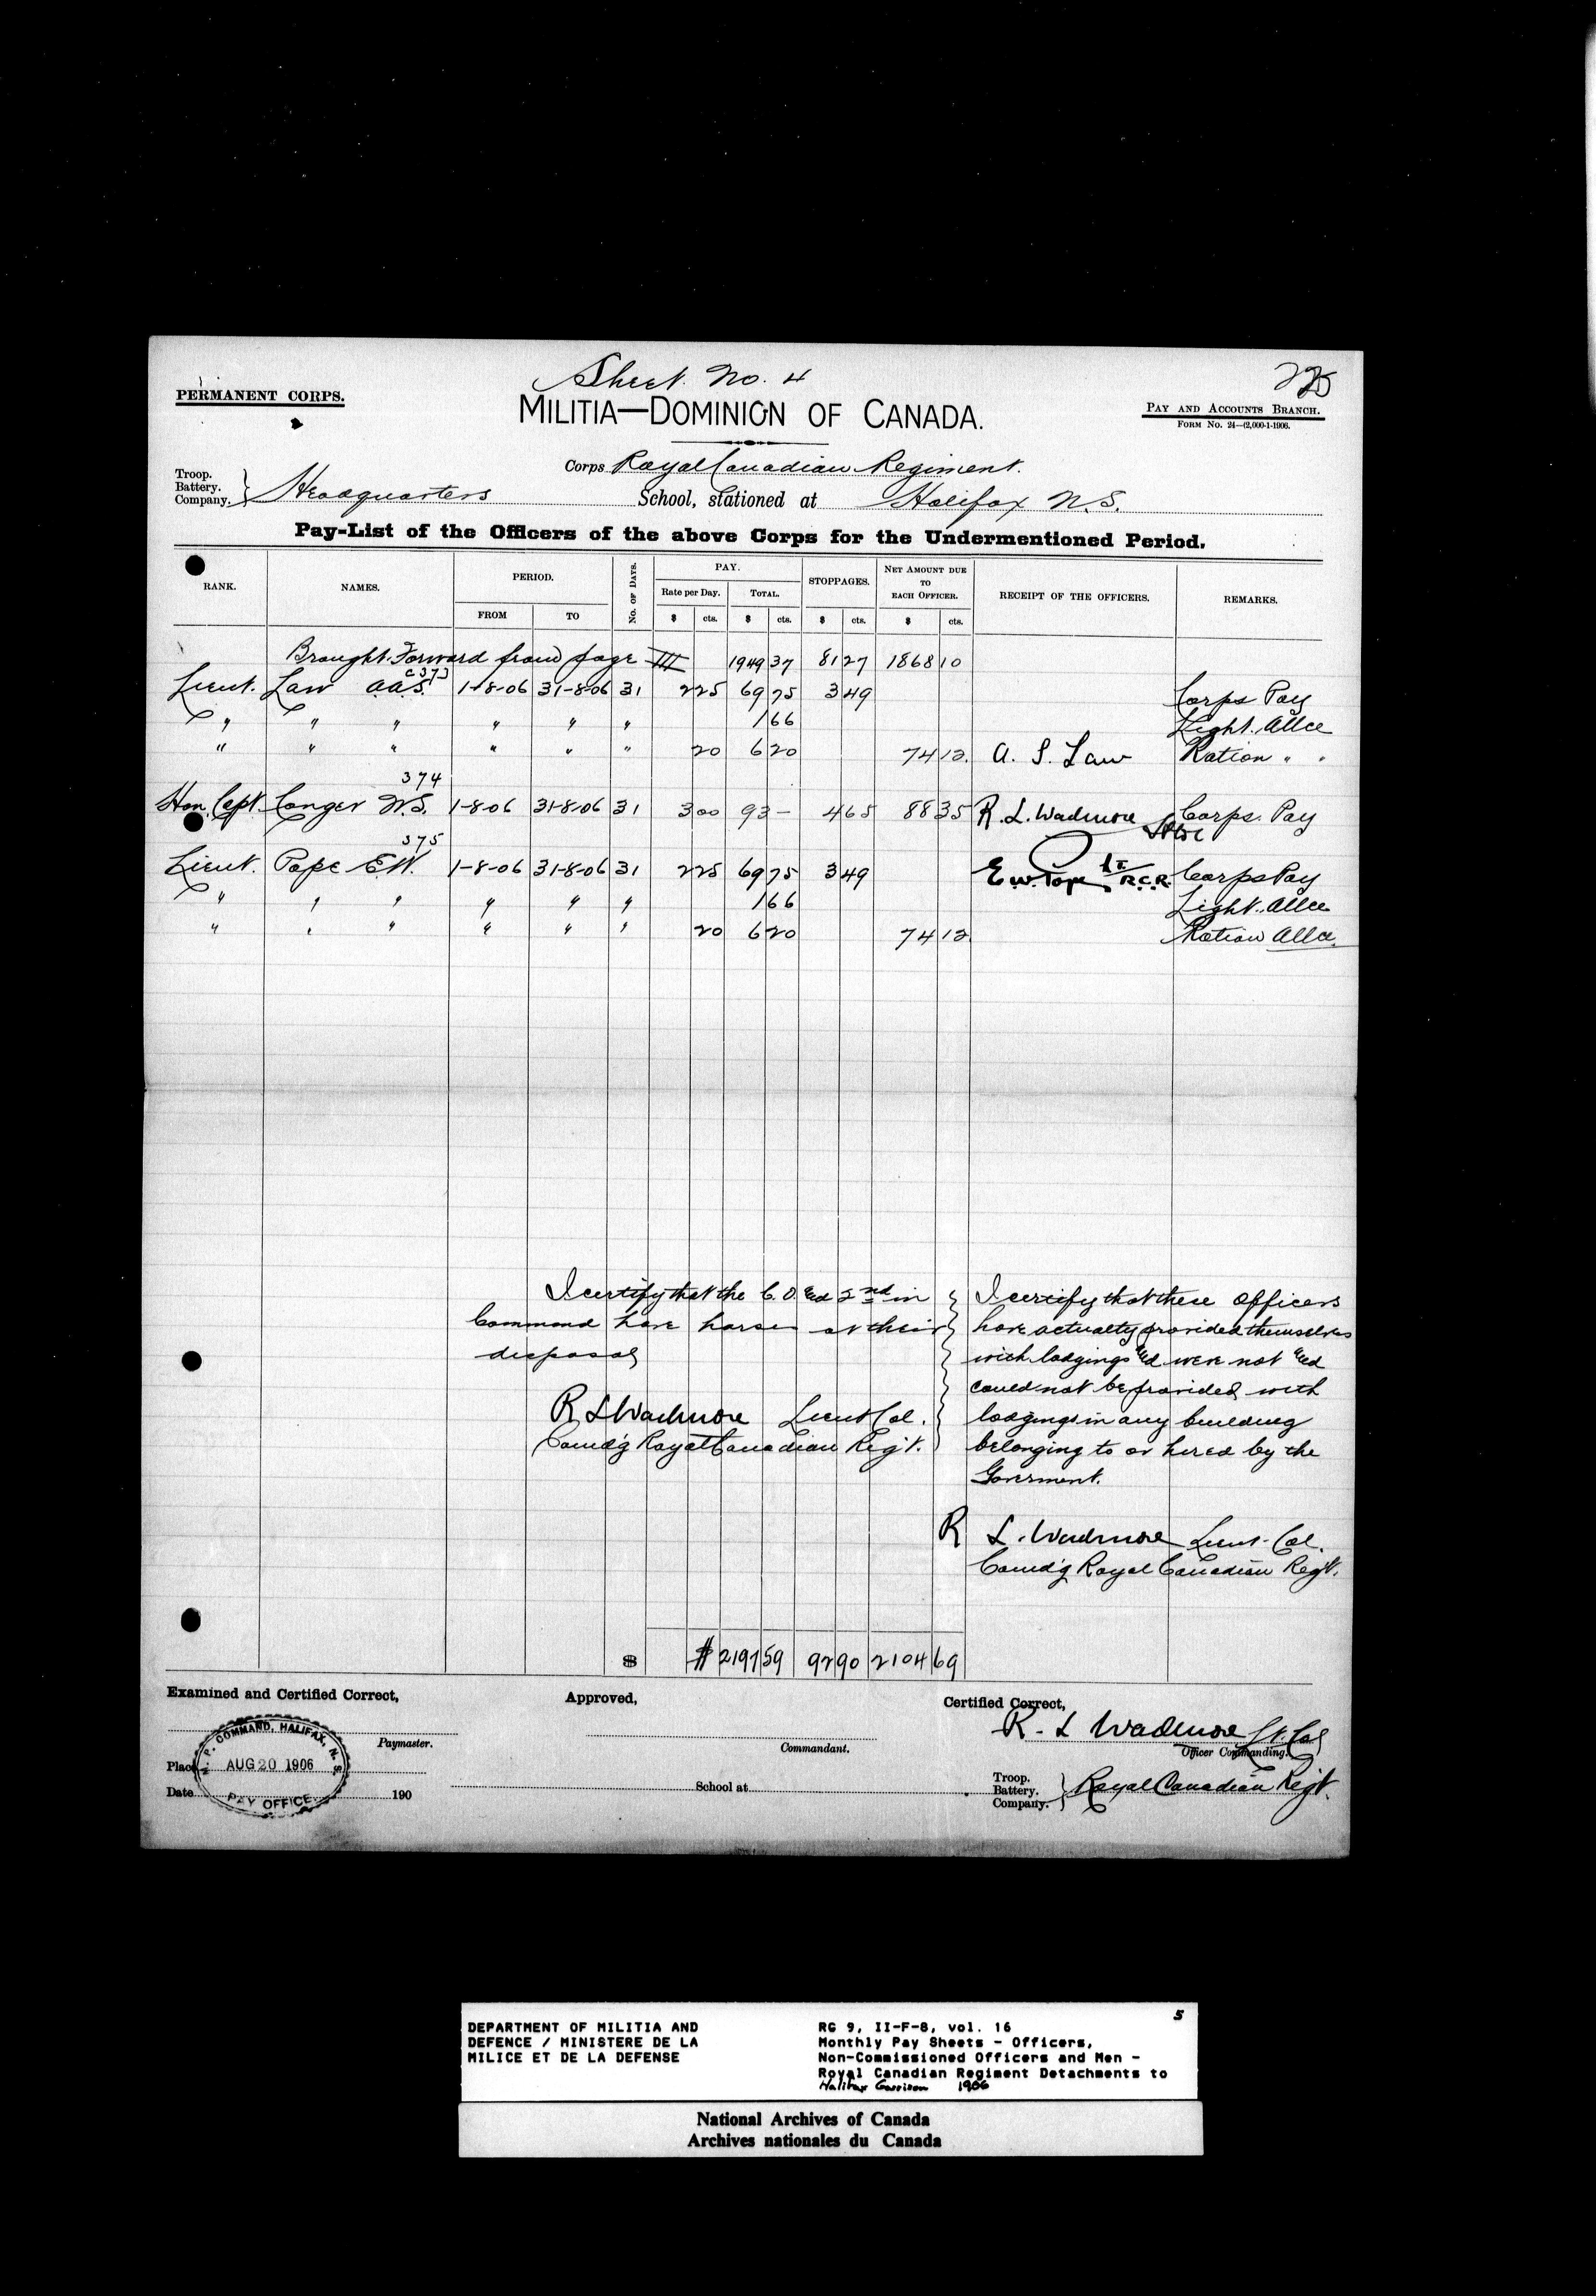 Sheet No. 4
225
PERMANENT CORPS.
MILITIA—DOMINION OF CANADA.
PAY AND ACCOUNTS BRANCH.
FORM No. 24—(2,000-1-1906.
Corps Royal Canadian Regiment.
Troop.
Battery.
Company. } Headquarters School, stationed at Halifax N.S.
Pay-List of the Officers of the above Corps for the Undermentioned Period.
RANK. NAMES. PERIOD. FROM TO No. OF DAYS. PAY. Rate per Day. $ cts. TOTAL. $ cts. STOPPAGES. $ cts. NET AMOUNT DUE TO EACH OFFICER. $ cts. RECEIPT OF THE OFFICERS. REMARKS.
Brought Forward from page III 1949 37 81 27 1868 10
C 373
Lieut. Law A.A.S. 1-8-06 31-8-06 31 2 25 69 75 3 49 Corps Pay
" " " " " " 1 66 Light. Allce
" " " " " " 20 6 20 74 12 A. S. Law Ration " "
374
Hon. Capt. Conger W.S. 1-8-06 31-8-06 31 3 00 93 - 4 65 88 35 R. L. Wadmore Corps Pay
375
Lieut. Pope E.W. 1-8-06 31-8-06 31 2 25 69 75 3 49 E.W. Pope Lt. R.C.R. Corps Pay
" " " " " " 1 66 Light. Allce
" " " " " " 20 6 20 74 12 Ration Allce.
I certify that the C.O. and 2nd in
Command have horses at their
disposal
R L Wadmore Lieut Col.
Comd'g Royal Canadian Reg't.
I certify that these Officers
have actually provided themselves
with lodgings and were not and
could not be provided with
lodgings in any building
belonging to or hired by the
Goverment.
R L. Wadmore Lieut-Col.
Comd'g Royal Canadian Reg't.
$ $ 2197 59 92 90 2104 69
Examined and Certified Correct,
Approved,
Certified Correct,
R. L Wadmore Lt. Col
Paymaster.
Commandant.
Officer Commanding.
N. P. COMMAND, HALIFAX, N. S.
AUG 20 1906
PAY OFFICE
Place
Date 190
School at
Troop.
Battery.
Company. } Royal Canadian Reg't.
5
DEPARTMENT OF MILITIA AND
DEFENCE / MINISTERE DE LA
MILICE ET DE LA DEFENSE
RG 9, II-F-8, vol. 16
Monthly Pay Sheets - Officers,
Non-Commissioned Officers and Men -
Royal Canadian Regiment Detachments to
Halifax Garrison 1906
National Archives of Canada
Archives nationales du Canada